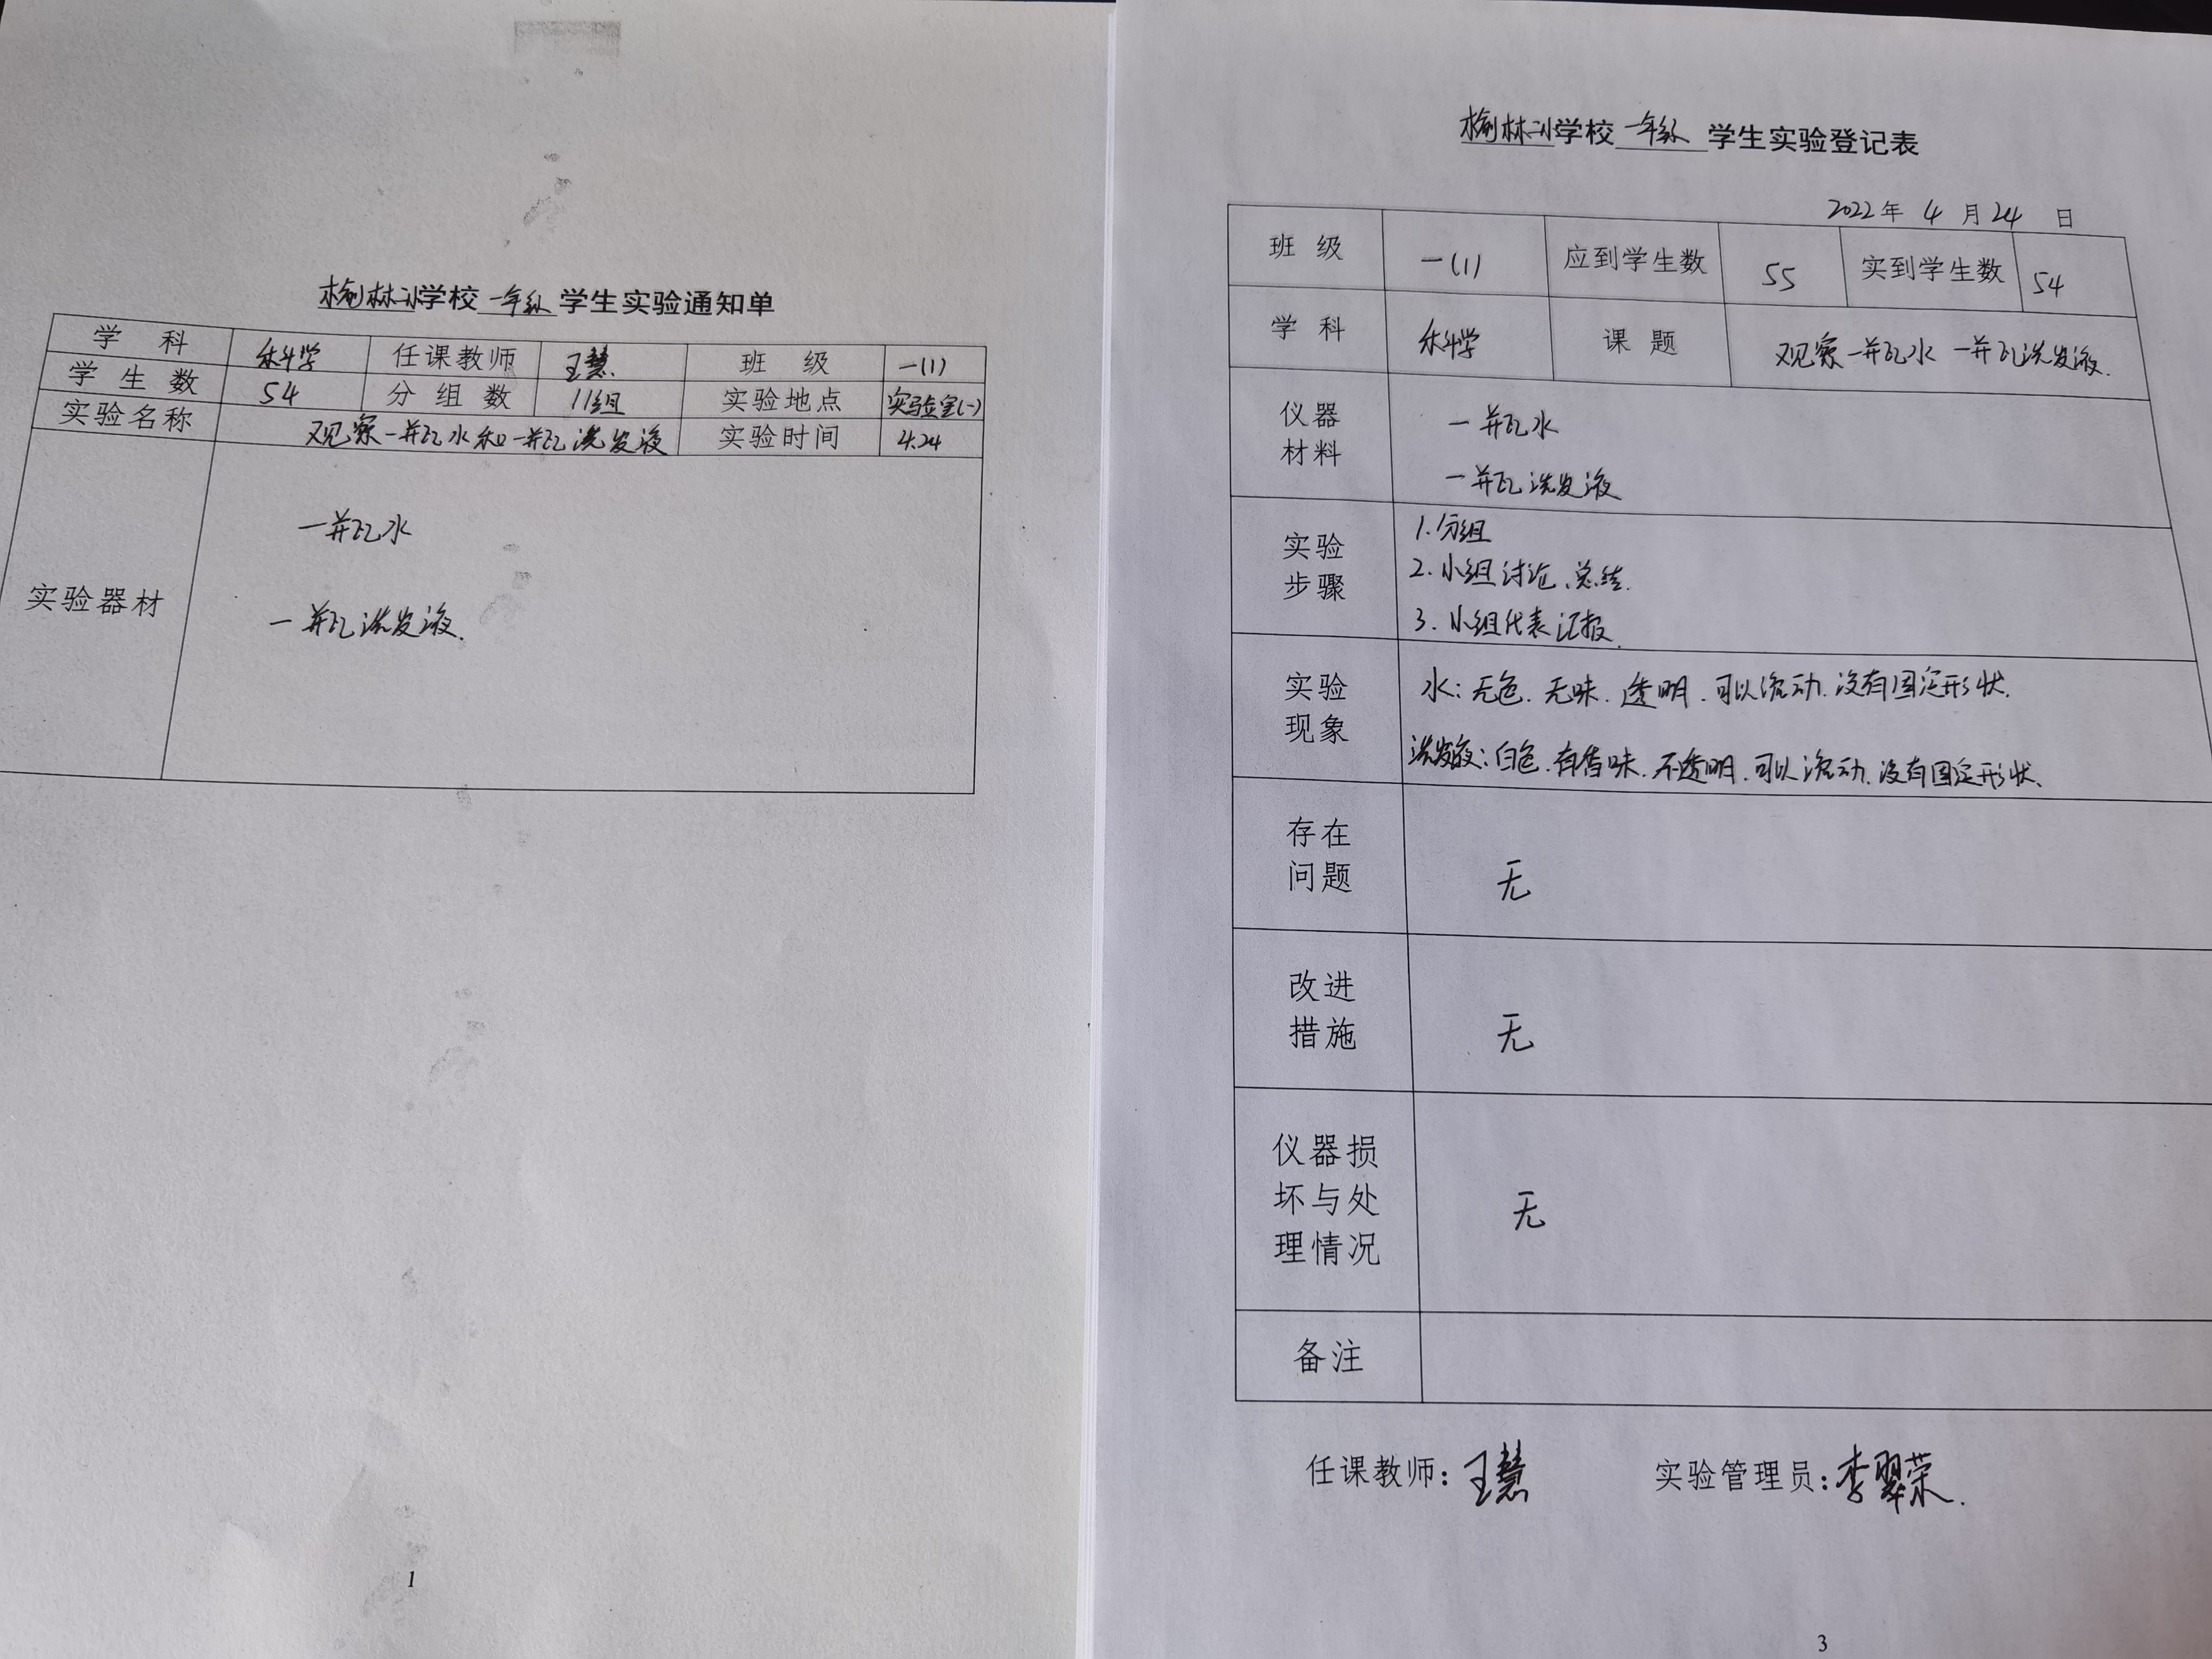 榆林二小学校一年级学生实验通知单
学科 科学 任课教师 王慧 班级 一(1)
学生数 54 分组数 11组 实验地点 实验室(一)
实验名称 观察一瓶水和一瓶洗发液 实验时间 4.24
实验器材
一瓶水
一瓶洗发液.
1
榆林二小学校一年级学生实验登记表
2022年4月24日
班级 一(1) 应到学生数 55 实到学生数 54
学科 科学 课题 观察一瓶水 一瓶洗发液.
仪器
材料
一瓶水
一瓶洗发液
实验
步骤
1.分组
2.小组讨论、总结.
3.小组代表汇报.
实验
现象
水:无色.无味.透明.可以流动.没有固定形状.
洗发液:白色.有香味.不透明.可以流动.没有固定形状.
存在
问题
无
改进
措施
无
仪器损
坏与处
理情况
无
备注
任课教师:王慧 实验管理员:李翠荣.
3